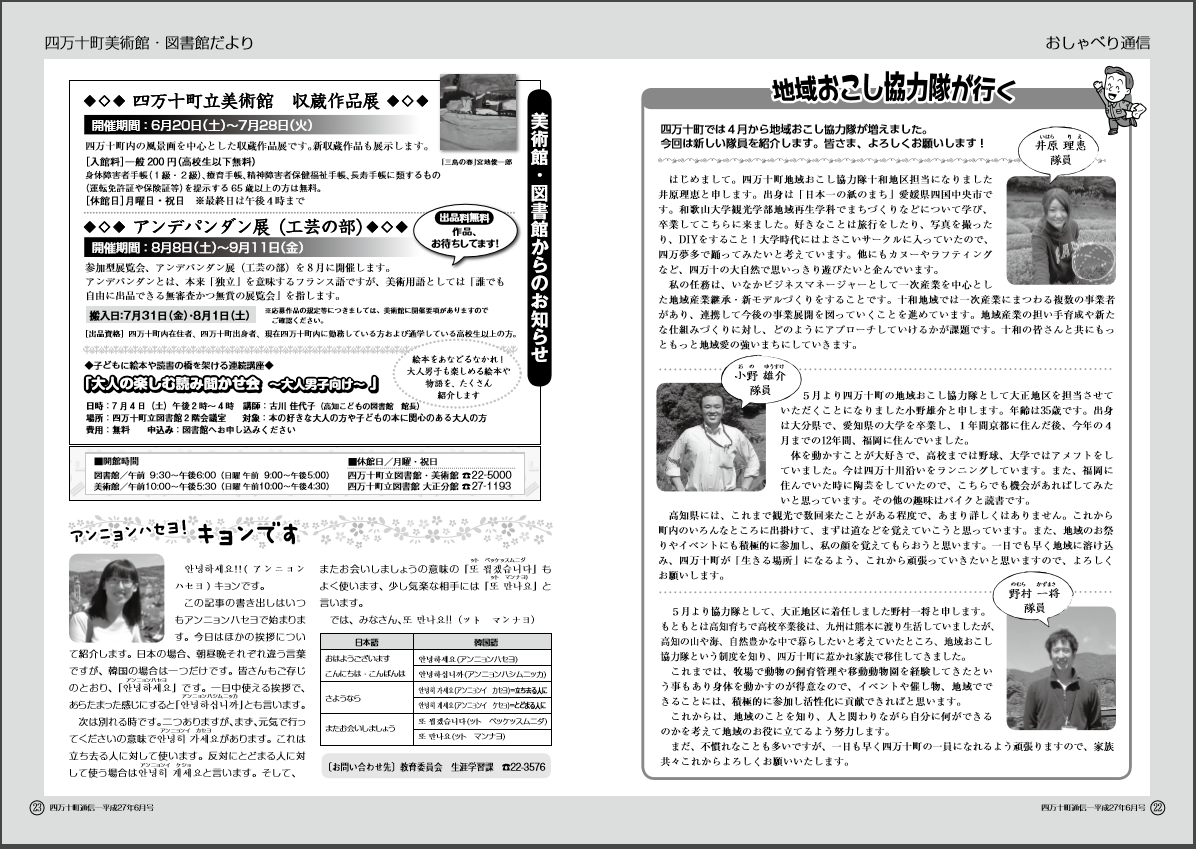 四万十町美術館・図書館だより
◆◇◆ 四万十町立美術館 収蔵作品展 ◆◇◆
開催期間：6月20日(土)～7月28日(火)
四万十町内の風景画を中心とした収蔵作品展です。新収蔵作品も展示します。
[入館料]一般200円(高校生以下無料)
身体障害者手帳(1級・2級)、療育手帳、精神障害者保健福祉手帳、長寿手帳に類するもの
(運転免許証や保険証等)を提示する65歳以上の方は無料。
[休館日]月曜日・祝日 ※最終日は午後4時まで
「三島の春」宮地俊一郎
美術館・図書館からのお知らせ
◆◇◆ アンデパンダン展（工芸の部）◆◇◆
開催期間：8月8日(土)～9月11日(金)
出品料無料
作品、
お待ちしてます!
参加型展覧会、アンデパンダン展（工芸の部）を8月に開催します。
アンデパンダンとは、本来「独立」を意味するフランス語ですが、美術用語としては「誰でも
自由に出品できる無審査かつ無賞の展覧会」を指します。
搬入日:7月31日(金)・8月1日(土)
※応募作品の規定等につきましては、美術館に開催要項がありますので
ご確認ください。
[出品資格] 四万十町内在住者、四万十町出身者、現在四万十町内に勤務している方および通学している高校生以上の方。
◆子どもに絵本や読書の橋を架ける連続講座◆
「大人の楽しむ読み聞かせ会 ～大人男子向け～」
絵本をあなどるなかれ!
大人男子も楽しめる絵本や
物語を、たくさん
紹介します
日時：7月4日（土）午後2時～4時 講師：古川 佳代子（高知こどもの図書館 館長）
場所：四万十町立図書館2階会議室 対象：本の好きな大人の方や子どもの本に関心のある大人の方
費用：無料 申込み：図書館へお申し込みください
■開館時間
図書館／午前 9:30～午後6:00（日曜 午前 9:00～午後5:00）
美術館／午前10:00～午後5:30（日曜 午前10:00～午後4:30）
■休館日／月曜・祝日
四万十町立図書館・美術館 ☎22-5000
四万十町立図書館 大正分館 ☎27-1193
アンニョンハセヨ! キョンです
안녕하세요!!（アンニョン
ハセヨ）キョンです。
この記事の書き出しはいつ
もアンニョンハセヨで始まりま
す。今日はほかの挨拶につい
て紹介します。日本の場合、朝昼晩それぞれ違う言葉
ですが、韓国の場合は一つだけです。皆さんもご存じ
アンニョンハセヨ
のとおり、「안녕하세요」です。一日中使える挨拶で、
アンニョンハシムニッカ
あらたまった感じにすると「안녕하십니까」とも言います。
次は別れる時です。二つありますが、まず、元気で行っ
アンニョンイ カセヨ
てくださいの意味で안녕히 가세요があります。これは
立ち去る人に対して使います。反対にとどまる人に対
アンニョンイ ケショ
して使う場合は안녕히 계세요と言います。そして、
ット ペッケッスムニダ
またお会いしましょうの意味の「또 뵙겠습니다」も
ット マンナヨ
よく使います、少し気楽な相手には「또 만나요」と
言います。
では、みなさん、또 만나요!!（ット マンナヨ）
日本語 韓国語
おはようございます 안녕하세요(アンニョンハセヨ)
こんにちは・こんばんは 안녕하십니까(アンニョンハシムニッカ)
さようなら 안녕히 가세요(アンニョンイ カセヨ)=立ち去る人に
안녕히 계세요(アンニョンイ ケセヨ)=とどまる人に
またお会いしましょう 또 뵙겠습니다(ット ペッケッスムニダ)
또 만나요(ット マンナヨ)
〔お問い合わせ先〕教育委員会 生涯学習課 ☎22-3576
㉓ 四万十町通信―平成27年6月号
おしゃべり通信
地域おこし協力隊が行く
四万十町では4月から地域おこし協力隊が増えました。
今回は新しい隊員を紹介します。皆さま、よろしくお願いします！
いはら りえ
井原 理恵
隊員
はじめまして。四万十町地域おこし協力隊十和地区担当になりました
井原理恵と申します。出身は「日本一の紙のまち」愛媛県四国中央市で
す。和歌山大学観光学部地域再生学科でまちづくりなどについて学び、
卒業してこちらに来ました。好きなことは旅行をしたり、写真を撮った
り、DIYをすること！大学時代にはよさこいサークルに入っていたので、
四万夢多で踊ってみたいと考えています。他にもカヌーやラフティング
など、四万十の大自然で思いっきり遊びたいと企んでいます。
私の任務は、いなかビジネスマネージャーとして一次産業を中心とし
た地域産業継承・新モデルづくりをすることです。十和地域では一次産業にまつわる複数の事業者
があり、連携して今後の事業展開を図っていくことを進めています。地域産業の担い手育成や新た
な仕組みづくりに対し、どのようにアプローチしていけるかが課題です。十和の皆さんと共にもっ
ともっと地域愛の強いまちにしていきます。
おの ゆうすけ
小野 雄介
隊員
5月より四万十町の地域おこし協力隊として大正地区を担当させて
いただくことになりました小野雄介と申します。年齢は35歳です。出身
は大分県で、愛知県の大学を卒業し、1年間京都に住んだ後、今年の4
月までの12年間、福岡に住んでいました。
体を動かすことが大好きで、高校までは野球、大学ではアメフトをし
ていました。今は四万十川沿いをランニングしています。また、福岡に
住んでいた時に陶芸をしていたので、こちらでも機会があればしてみた
いと思っています。その他の趣味はバイクと読書です。
高知県には、これまで観光で数回来たことがある程度で、あまり詳しくはありません。これから
町内のいろんなところに出掛けて、まずは道などを覚えていこうと思っています。また、地域のお祭
りやイベントにも積極的に参加し、私の顔を覚えてもらおうと思います。一日でも早く地域に溶け込
み、四万十町が「生きる場所」になるよう、これから頑張っていきたいと思いますので、よろしく
お願いします。
のむら かずまさ
野村 一将
隊員
5月より協力隊として、大正地区に着任しました野村一将と申します。
もともとは高知育ちで高校卒業後は、九州は熊本に渡り生活していましたが、
高知の山や海、自然豊かな中で暮らしたいと考えていたところ、地域おこし
協力隊という制度を知り、四万十町に惹かれ家族で移住してきました。
これまでは、牧場で動物の飼育管理や移動動物園を経験してきたとい
う事もあり身体を動かすのが得意なので、イベントや催し物、地域でで
きることには、積極的に参加し活性化に貢献できればと思います。
これからは、地域のことを知り、人と関わりながら自分に何ができる
のかを考えて地域のお役に立てるよう努力します。
まだ、不慣れなことも多いですが、一日も早く四万十町の一員になれるよう頑張りますので、家族
共々これからよろしくお願いいたします。
四万十町通信―平成27年6月号 ㉒